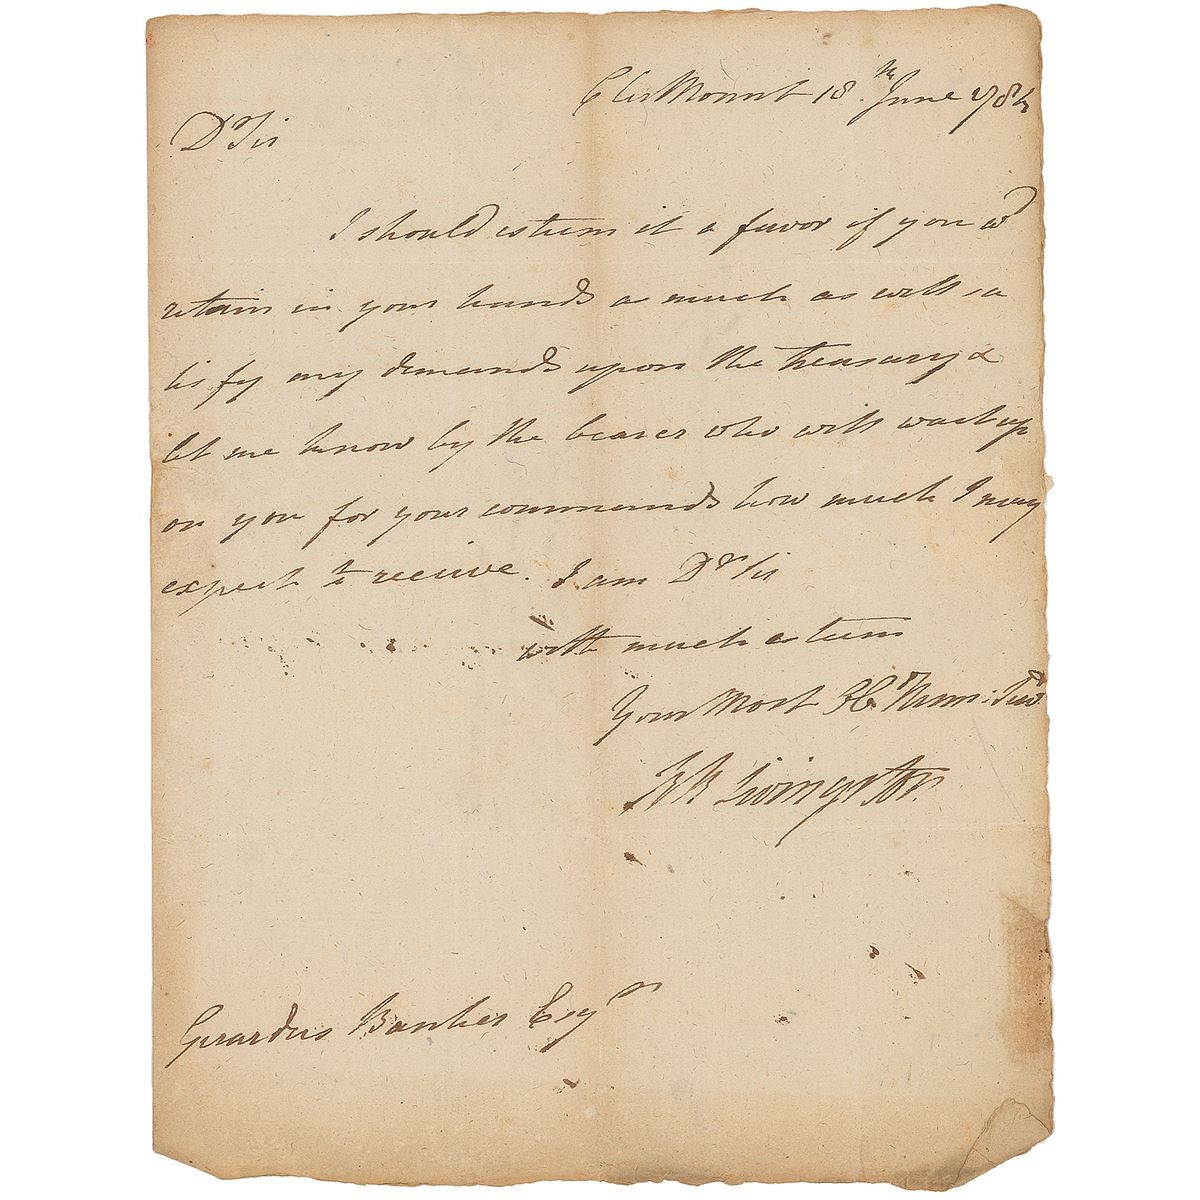 Cler Mount 18.th June 1784
Dr Sir
I should esteem it a favor if you wd
retain in your hands as much as will sa
tisfy my demands upon the treasury &
let me know by the bearer who will wait up
on you for your commands how much I may
expect to receive. I am Dr Sir
with much esteem
Your Most Ob Hum: Serv
RR Livingston
Gerardus Bancker Esqr